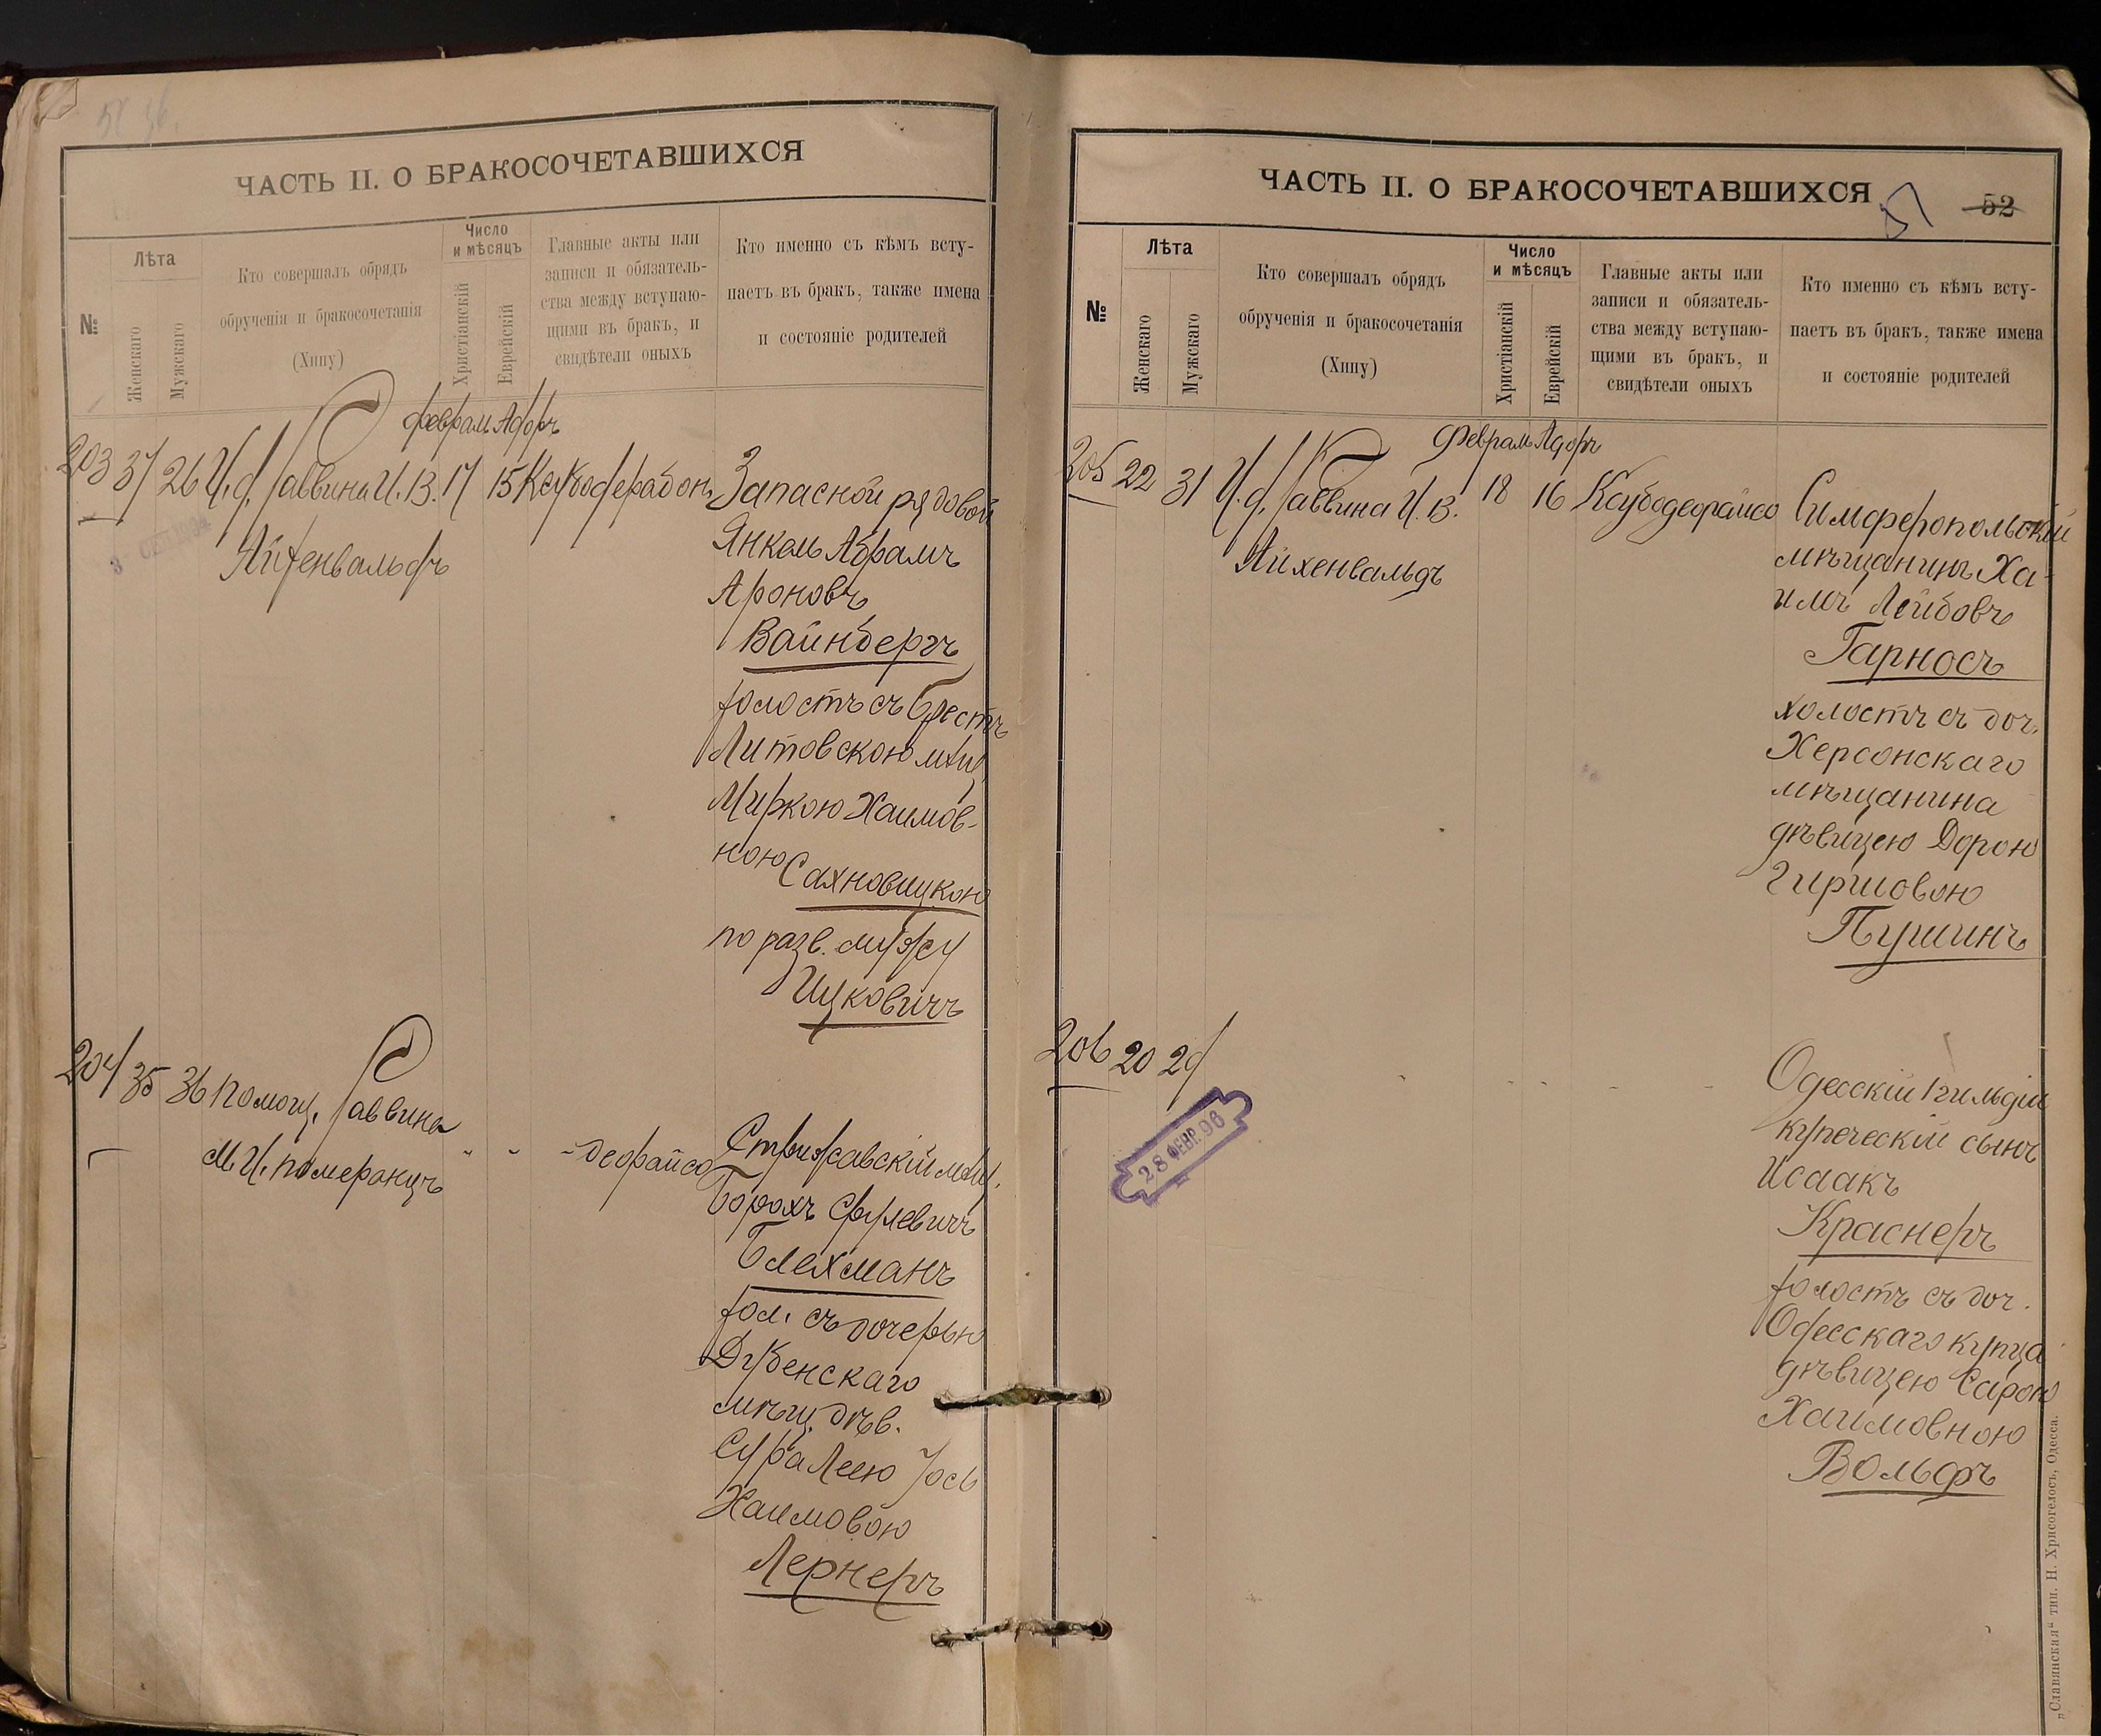 ЧАСТЬ II. О БРАКОСОЧЕТАВШИХСЯ
№
Лѣта
Женскаго
Мужскаго
Кто совершалъ обрядъ
обрученія и бракосочетанія
(Хипу)
Число
и мѣсяцъ
Христіанскій
Еврейскій
Главные акты или
записи и обязатель-
ства между вступаю-
щими въ бракъ, и
свидѣтели оныхъ
Кто именно съ кѣмъ всту-
паетъ въ бракъ, также имена
и состояніе родителей
Феврал Адоръ
203 37 26 И. д. Раввина И. В. 17 15
Айхенвальдъ
Запасной рядовой
Янкель Абрамъ
Ароновъ
Вайнбергъ
холостъ съ Брестъ
Литовскою мѣщ.
Миркою Хаимов-
ною Сахновицкою
по разв. мужу
Ицковичъ
204 35 36 Помощ. Раввина " " "
М. И. Померанцъ
Стрижавскій мѣщ.
Борохъ Срулевичъ
Блехманъ
хол. съ дочерью
Дубенскаго
мѣщ. дѣв.
Сура Леею Іось
Хаимовою
Лернеръ
ЧАСТЬ II. О БРАКОСОЧЕТАВШИХСЯ
51 52
№
Лѣта
Женскаго
Мужскаго
Кто совершалъ обрядъ
обрученія и бракосочетанія
(Хипу)
Число
и мѣсяцъ
Христіанскій
Еврейскій
Главные акты или
записи и обязатель-
ства между вступаю-
щими въ бракъ, и
свидѣтели оныхъ
Кто именно съ кѣмъ всту-
паетъ въ бракъ, также имена
и состояніе родителей
Феврал Адоръ
205 22 31 И. д. Раввина И. В. 18 16 Ксубодеорайсо
Айхенвальдъ
Симферопольскій
мѣщанинъ Ха-
имъ Лейбовъ
Гарносъ
холостъ съ доч.
Херсонскаго
мѣщанина
дѣвицею Дорою
Гиршовою
Пушинъ
206 20 29 " " " " "
28 ФЕВР. 96
Одесскій 1 гильдіи
купеческій сынъ
Исаакъ
Краснеръ
холостъ съ доч.
Одесскаго купца
дѣвицею Сарою
Хаимовною
Вольфъ
„Славянская“ тип. Н. Хрисогелосъ, Одесса.